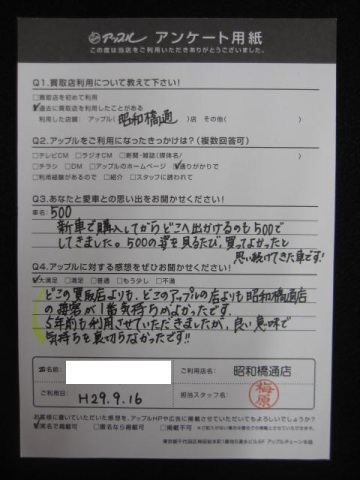 アップル アンケート用紙
この度は当店をご利用いただきありがとうございました。
Q1.買取店利用について教えて下さい!
□買取店を初めて利用
☑過去に買取店を利用したことがある
利用した店舗: アップル( 昭和橋通 )店 その他( )
Q2.アップルをご利用になったきっかけは?(複数回答可)
□テレビCM □ラジオCM □新聞・雑誌(媒体名/ )
□チラシ □DM □アップルのホームページ ☑通りがかりで
□利用経験があるので □紹介 □スタッフに誘われて
Q3.あなたと愛車との思い出をお聞かせください!
車名 500
新車で購入してからどこへ出かけるのも500で
してきました。500の姿を見るたび、買ってよかったと
思い続けてきた車です!
Q4.アップルに対する感想をぜひお聞かせください!
☑大満足 □満足 □普通 □もう少し □不満
どこの買取店よりも、どこのアップルの店よりも昭和橋通店
の接客が1番気持ちがよかったです。
5年前も利用させていただきましたが、良い意味で
気持ちを裏切らなかったです!!
お名前:
ご利用店名: 昭和橋通店
ご利用日: H29.9.16
担当スタッフ名: 梅原
お客様に書いていただいた感想を、アップルHPや広告に掲載させていただいてもよろしいでしょうか?
☑実名で掲載可 □匿名なら掲載可 □掲載不可